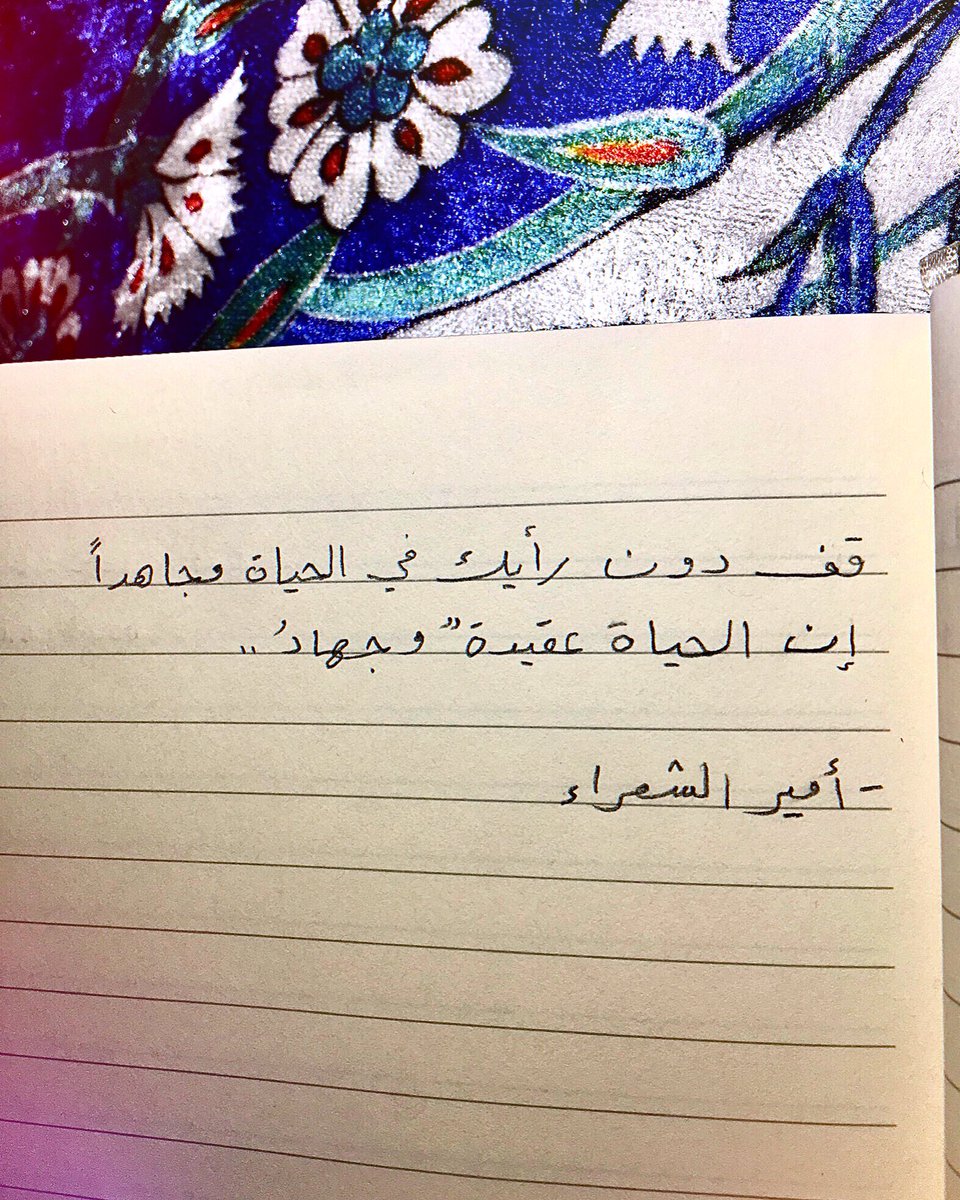 قف دون رأيك في الحياة وجاهداً
إن الحياة عقيدةٌ وجهادُ..
- أمير الشعراء